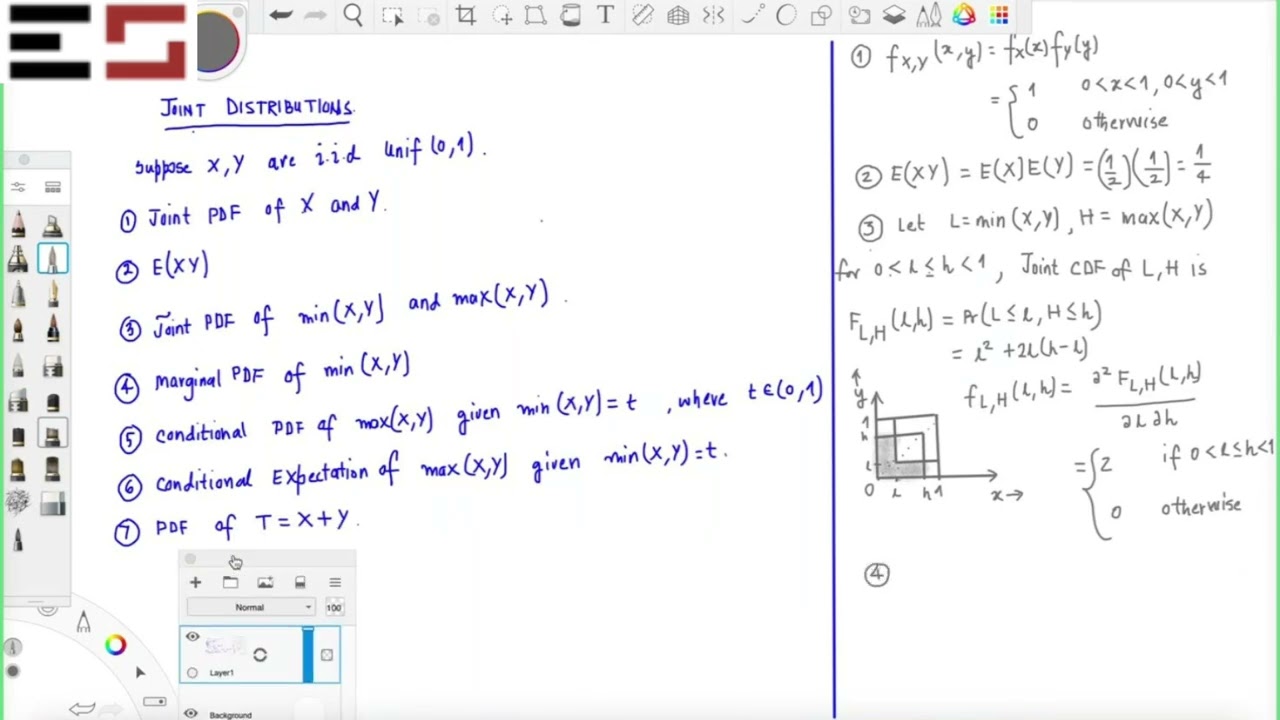 ES
JOINT DISTRIBUTIONS.
Suppose X, Y are i.i.d Unif (0,1).
① Joint PDF of X and Y.
② E(XY)
③ Joint PDF of min(X,Y) and max(X,Y).
④ Marginal PDF of min(X,Y)
⑤ Conditional PDF of max(X,Y) given min(X,Y)=t, where t∈(0,1)
⑥ Conditional Expectation of max(X,Y) given min(X,Y)=t.
⑦ PDF of T=X+Y.
Normal
100
Layer1
Background
① f_{X,Y}(x,y) = f_X(x) f_Y(y)
= { 1 0<x<1, 0<y<1
0 otherwise
② E(XY) = E(X)E(Y) = (1/2)(1/2) = 1/4
③ Let L=min(X,Y), H = max(X,Y)
for 0<l≤h<1, Joint CDF of L,H is
F_{L,H}(l,h) = Pr(L≤l, H≤h)
= l² + 2l(h-l)
f_{L,H}(l,h) = ∂² F_{L,H}(l,h) / ∂l ∂h
= { 2 if 0<l≤h<1
0 otherwise
y
1
h
l
0 l h 1 x→
④